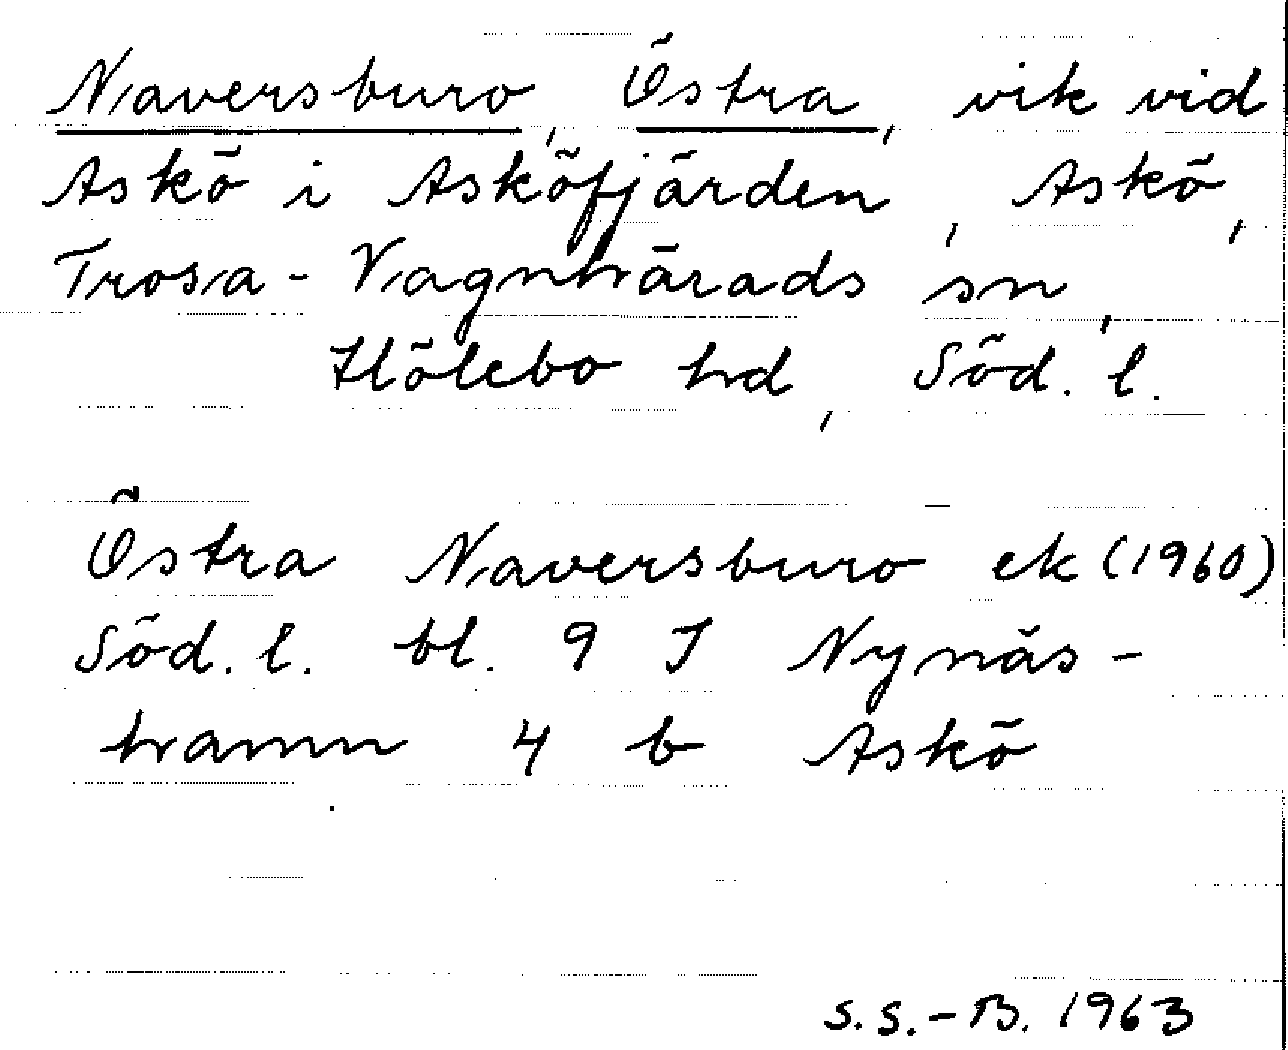 Naversburo, Östra, vik vid
Askö i Asköfjärden, Askö,
Trosa-Vagnhärads sn,
Hölebo hd, Söd. l.
Östra Naversburo ek (1960)
Söd. l. bl. 9 J Nynäs-
hamn 4 b Askö
S.S.-B. 1963